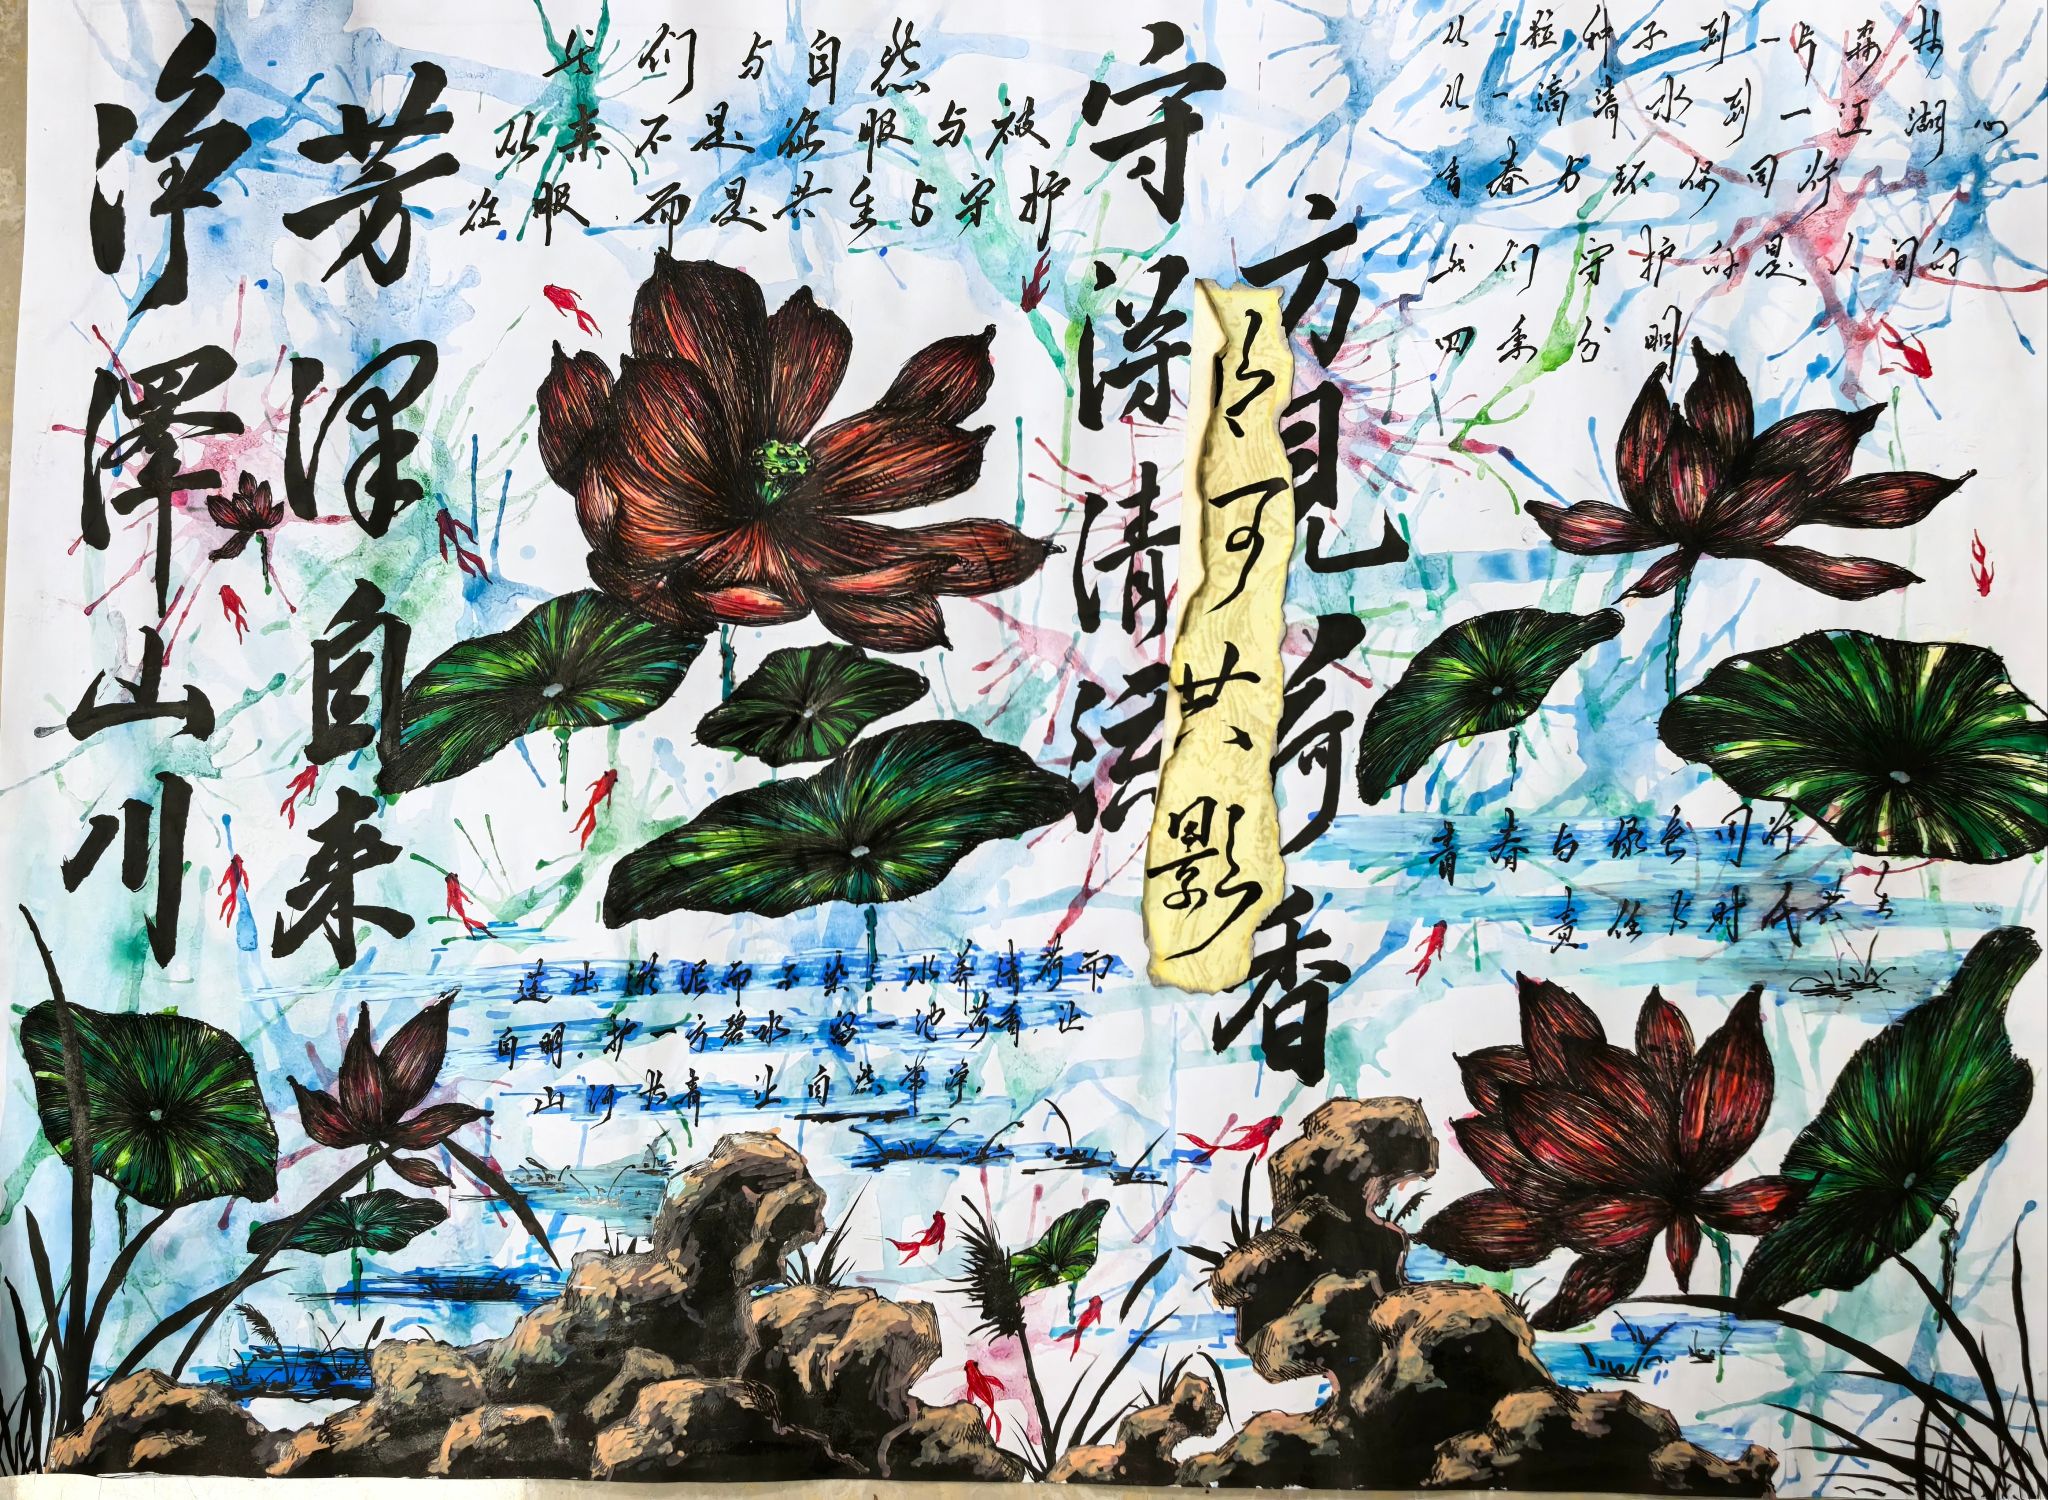 净泽山川
芳泽自来
我们与自然
从来不是征服与被
征服，而是共生与守护
守得清澈
方见荷香
共影
从一粒种子到一片森林
从一滴清水到一汪湖心
青春与环保同行
我们守护的是人间的
四季分明
青春与绿色同行
责任与时代共生
莲出淤泥而不染，水养清荷而
自明，护一方碧水，留一池荷香，让
山河长青 让自然常净